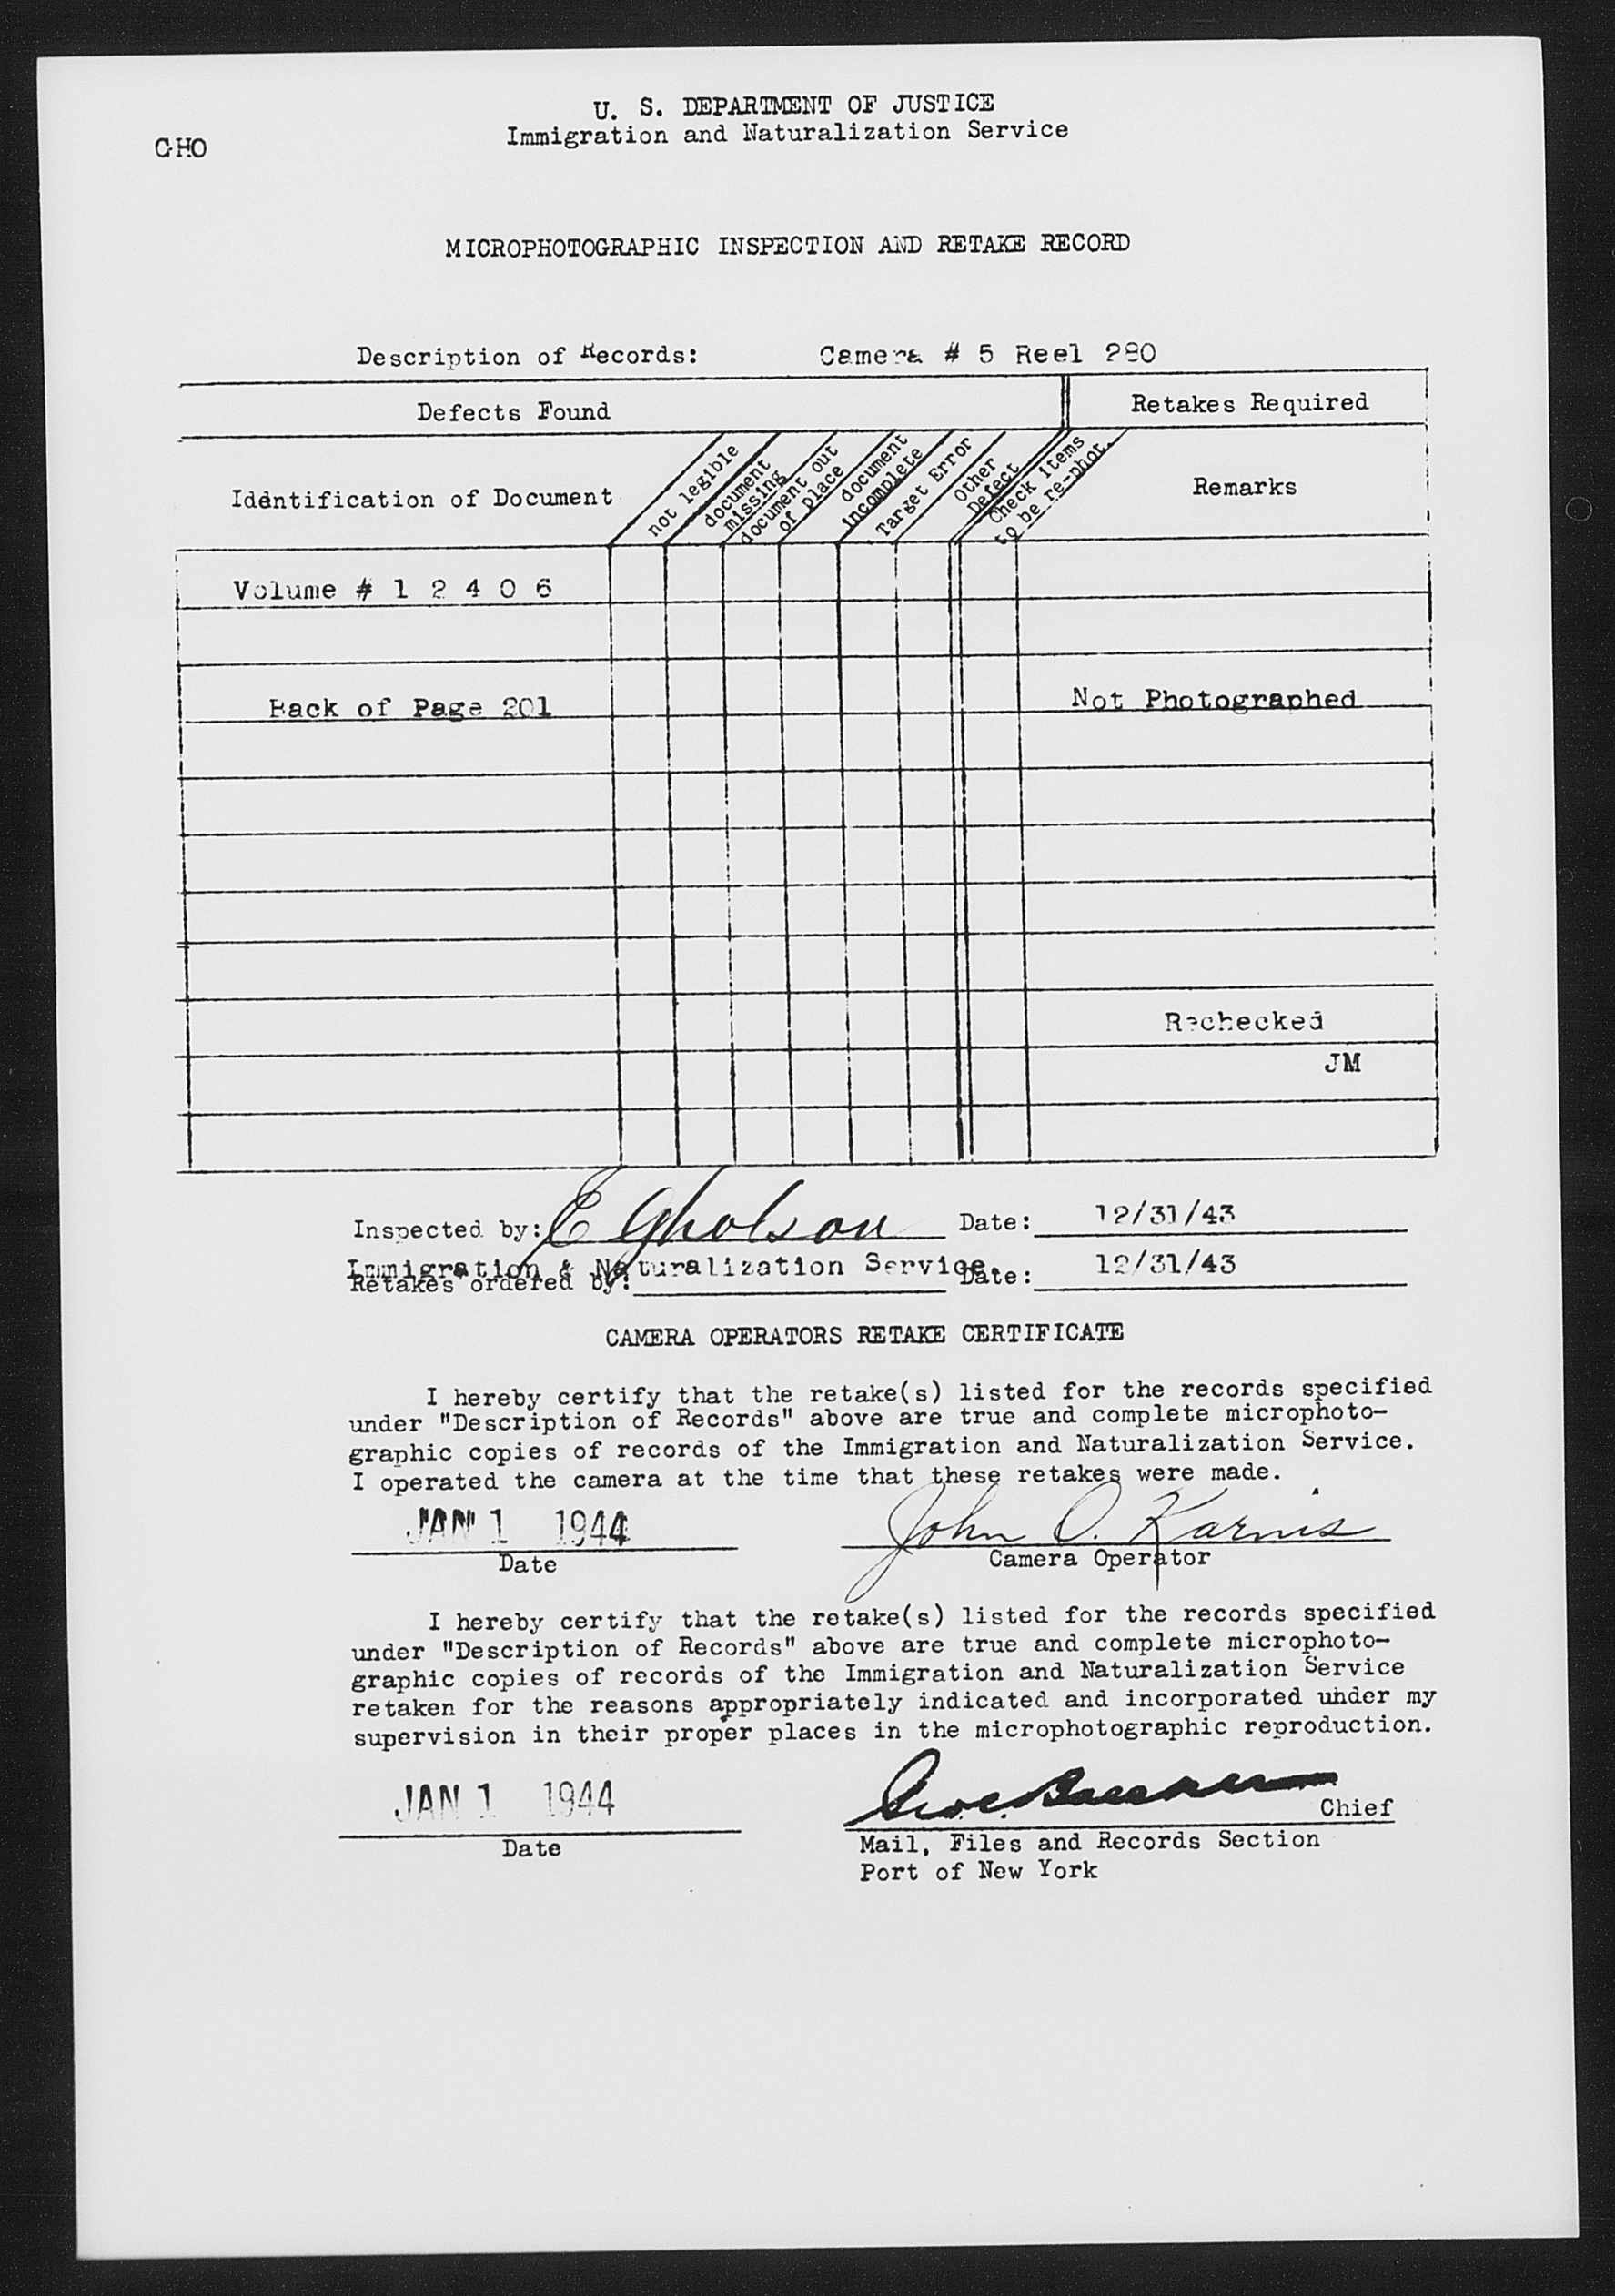 U. S. DEPARTMENT OF JUSTICE
GHO
Immigration and Naturalization Service
MICROPHOTOGRAPHIC INSPECTION AND RETAKE RECORD
Description of Records: Camera # 5 Reel 280
Defects Found
Retakes Required
Identification of Document
not legible
document missing
document out of place
document incomplete
Target Error
Other Defect
Check items to be re-phot.
Remarks
Volume # 1 2 4 0 6
Back of Page 201 Not Photographed
Rechecked
JM
Inspected by: E Gholson Date: 12/31/43
Immigration & Naturalization Service.
Retakes ordered by: Date: 12/31/43
CAMERA OPERATORS RETAKE CERTIFICATE
I hereby certify that the retake(s) listed for the records specified
under "Description of Records" above are true and complete microphoto-
graphic copies of records of the Immigration and Naturalization Service.
I operated the camera at the time that these retakes were made.
JAN 1 1944 John O. Karnis
Date Camera Operator
I hereby certify that the retake(s) listed for the records specified
under "Description of Records" above are true and complete microphoto-
graphic copies of records of the Immigration and Naturalization Service
retaken for the reasons appropriately indicated and incorporated under my
supervision in their proper places in the microphotographic reproduction.
JAN 1 1944 Chief
Date Mail, Files and Records Section
Port of New York